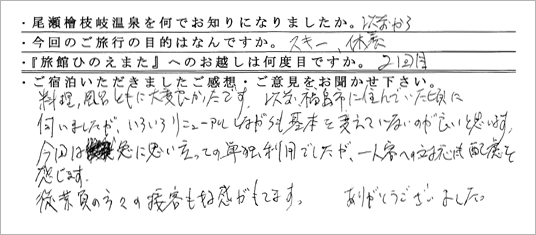 ・尾瀬檜枝岐温泉を何でお知りになりましたか。以前から
・今回のご旅行の目的はなんですか。スキー、休養
・『旅館ひのえまた』へのお越しは何度目ですか。2回目
・ご宿泊いただきましたご感想・ご意見をお聞かせ下さい。
料理、風呂ともに大変よかったです。以前福島市に住んでいた頃に
伺いましたが、いろいろリニューアルしながらも基本を変えていないのが良いと思います。
今回は急に思い立っての単独利用でしたが、一人客への対応も配慮を
感じます。
従業員の方々の接客も好感がもてます。 ありがとうございました。